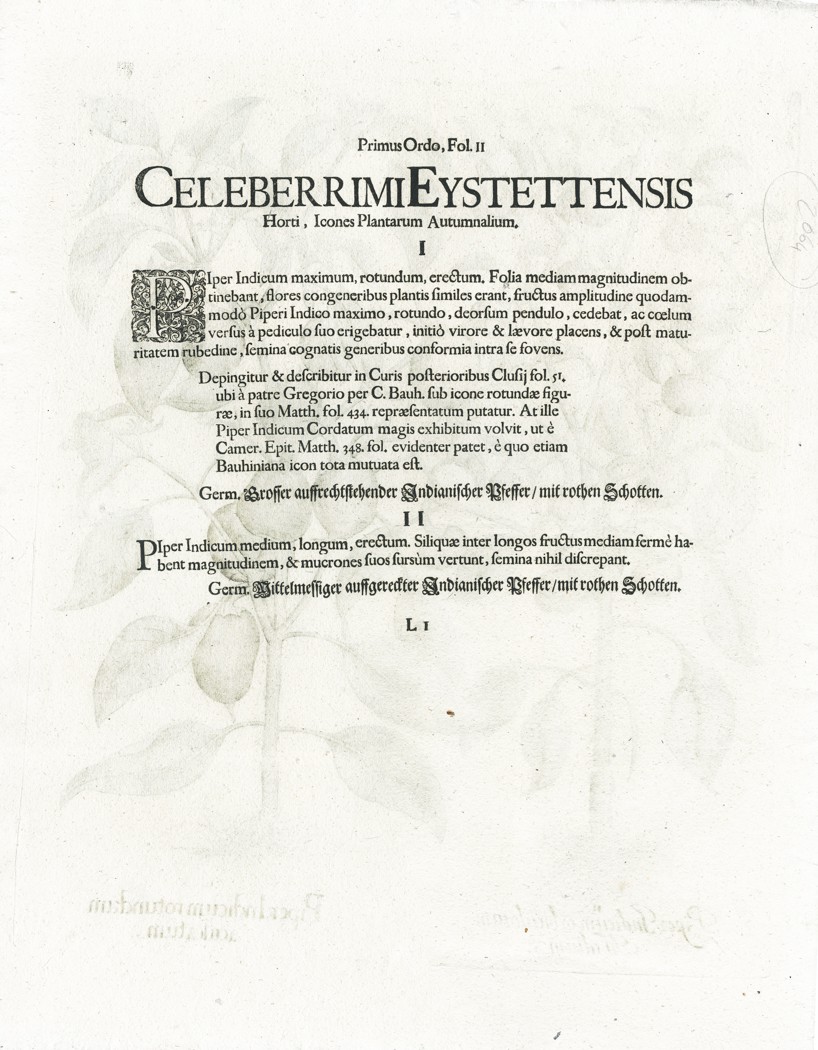 Primus Ordo, Fol. II
CELEBERRIMI EYSTETTENSIS
Horti, Icones Plantarum Autumnalium.
I
PIper Indicum maximum, rotundum, erectum. Folia mediam magnitudinem ob-
tinebant, flores congeneribus plantis ſimiles erant, fructus amplitudine quodam-
modò Piperi Indico maximo, rotundo, deorſum pendulo, cedebat, ac cœlum
verſus à pediculo ſuo erigebatur, initiò virore & lævore placens, & poſt matu-
ritatem rubedine, ſemina cognatis generibus conformia intra ſe fovens.
Depingitur & deſcribitur in Curis poſterioribus Cluſij fol. 51.
ubi à patre Gregorio per C. Bauh. ſub icone rotundæ figu-
ræ, in ſuo Matth. fol. 434. repræſentatum putatur. At ille
Piper Indicum Cordatum magis exhibitum volvit, ut è
Camer. Epit. Matth. 348. fol. evidenter patet, è quo etiam
Bauhiniana icon tota mutuata eſt.
Germ. Groſſer auffrechtſtehender Indianiſcher Pfeffer/ mit rothen Schotten.
II
PIper Indicum medium, longum, erectum. Siliquæ inter longos fructus mediam fermè ha-
bent magnitudinem, & mucrones ſuos ſursùm vertunt, ſemina nihil diſcrepant.
Germ. Mittelmeſſiger auffgereckter Indianiſcher Pfeffer/ mit rothen Schotten.
L I
Piper Indicum rotundum